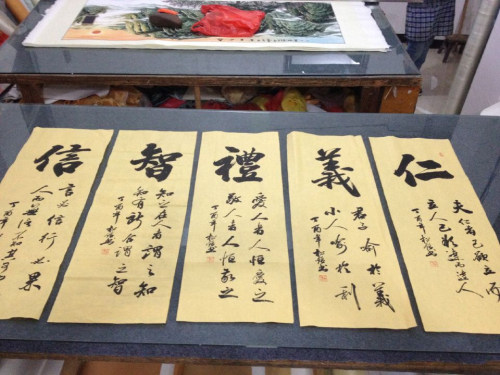 仁
夫仁者己欲立而
立人己欲達而達人
丁酉年
義
君子喻於義
小人喻於利
丁酉年
禮
愛人者人恒愛之
敬人者人恒敬之
丁酉年
智
知之在人者謂之知
知有所合謂之智
丁酉年
信
言必信行必果
人而無信不知其可
丁酉年